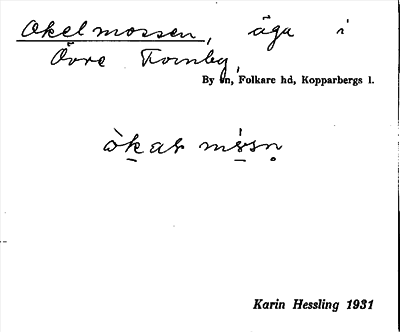 Okelmossen, äga i
Övre Fornby,
By sn, Folkare hd, Kopparbergs l.
òkar mòsn
Karin Hessling 1931